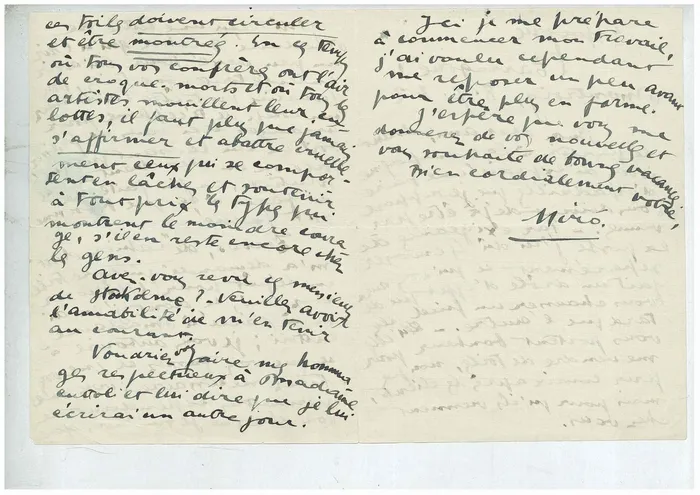 ces toiles doivent circuler
et être montrés. En ces temps
où tous vos confrères ont l'air
de croque-morts et où tous les
artistes mouillent leur cu-
lottes, il faut plus que jamais
s'affirmer et abattre cruelle-
ment ceux qui se compor-
tent en lâches et soutenir
à tout prix les types qui
montrent le moindre coura-
ge, s'il en reste encore chez
les gens.
Avez-vous revu ces messieurs
de Stockolme? Veuillez avoir
l'amabilité de m'en tenir
au courant
Voudriez vous faire mes homma-
ges respectueux à Madame
et lui dire que je lui
écrirai un autre jour.
Ici je me prépare
à commencer mon travail,
j'ai voulu cependant
me reposer un peu avant
pour être plus en forme.
J'espère que vous me
donnerez de vos nouvelles et
vous souhaite de bonnes vacances
bien cordialement votre,
Miró.